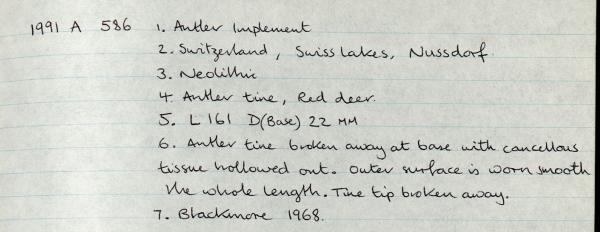 1991 A 586 1. Antler Implement
2. Switzerland, Swiss Lakes, Nussdorf.
3. Neolithic
4. Antler tine, Red deer.
5. L 161 D(Base) 22 MM
6. Antler tine broken away at base with cancellous
tissue hollowed out. Outer surface is worn smooth
the whole length. Tine tip broken away.
7. Blackmore 1968.